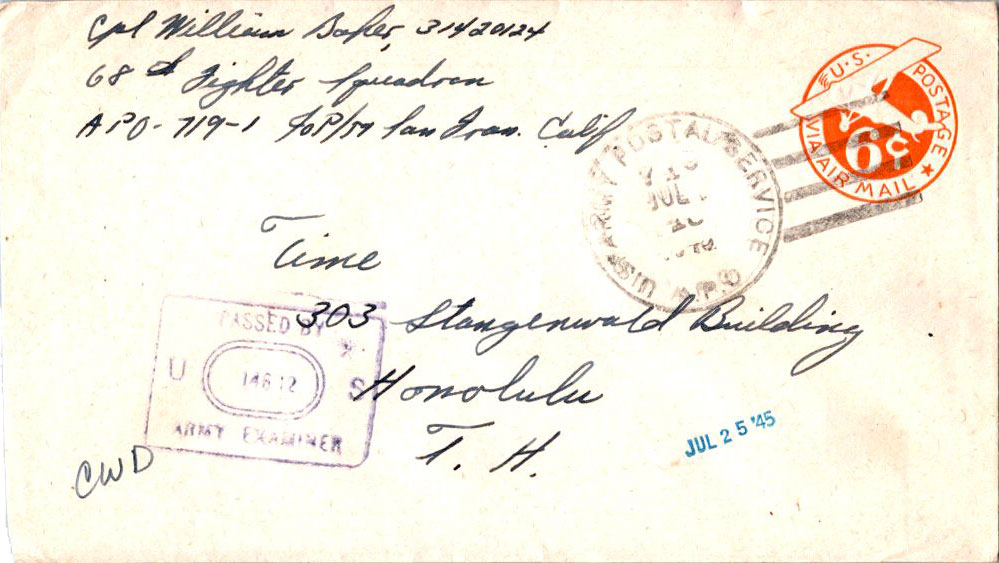 Cpl William 31420124
68th Fighter Squadron
APO-719-1 c/o P/M San Fran. Calif
U.S. POSTAGE
6c
VIA AIR MAIL
U.S. ARMY POSTAL SERVICE
JUL
A.P.O
Time
303 Stangenwald Building
Honolulu
T. H.
PASSED BY
U S
ARMY EXAMINER
JUL 25 '45
CWD